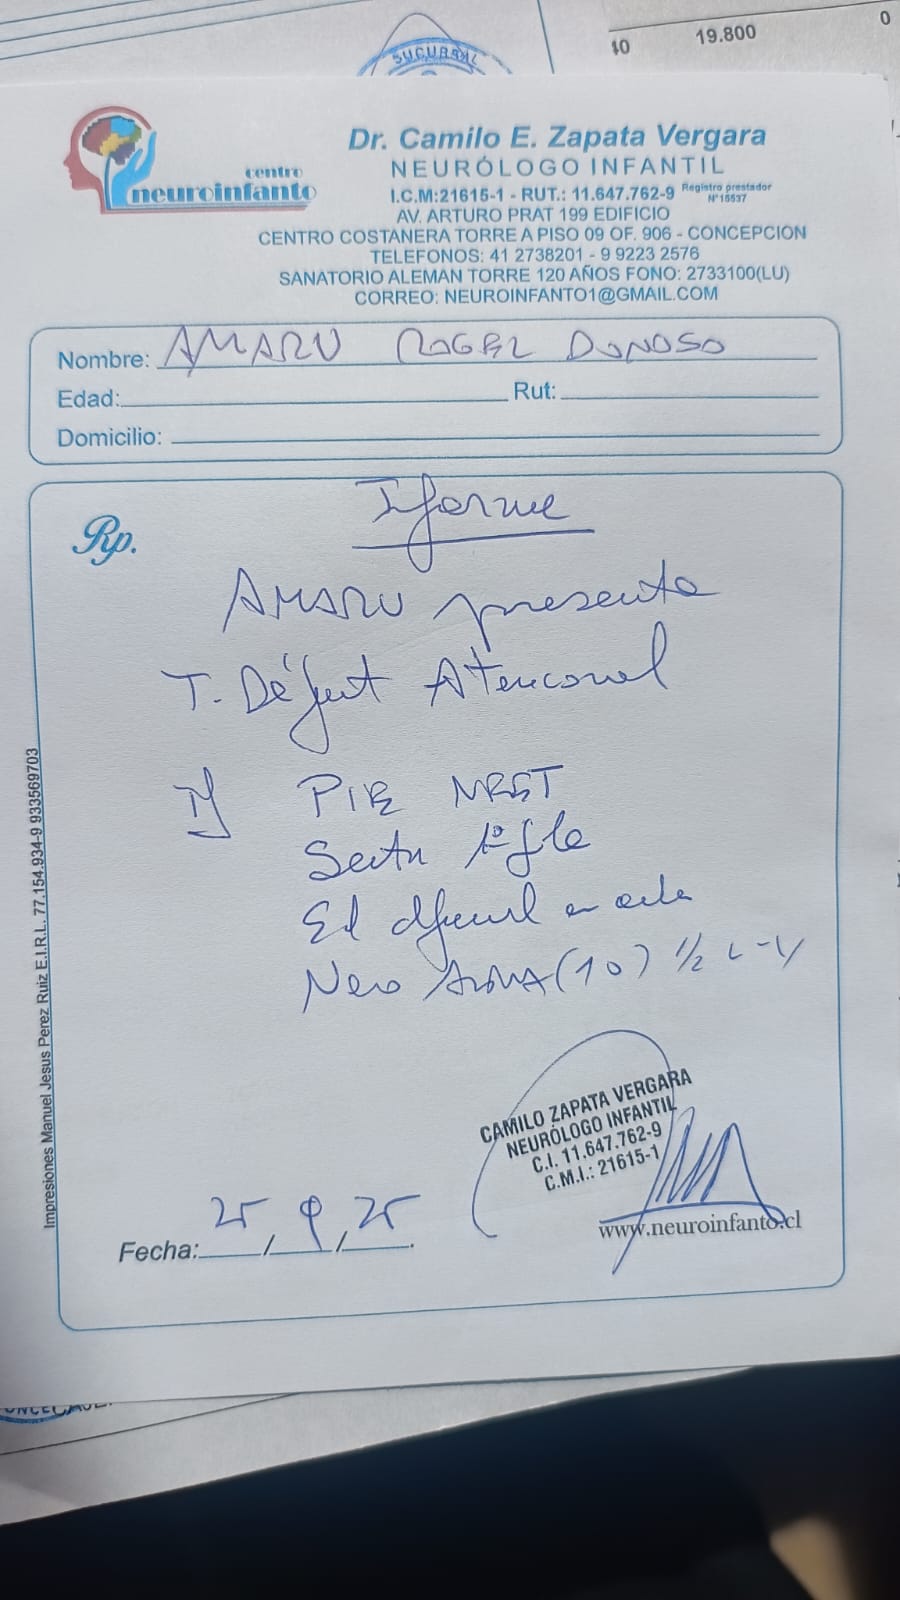 SUCURSAL
40 19.800 0
centro
neuroinfanto
Dr. Camilo E. Zapata Vergara
NEURÓLOGO INFANTIL
I.C.M:21615-1 - RUT.: 11.647.762-9 Registro prestador N°15537
AV. ARTURO PRAT 199 EDIFICIO
CENTRO COSTANERA TORRE A PISO 09 OF. 906 - CONCEPCION
TELEFONOS: 41 2738201 - 9 9223 2576
SANATORIO ALEMAN TORRE 120 AÑOS FONO: 2733100(LU)
CORREO: NEUROINFANTO1@GMAIL.COM
Nombre: AMARU ROGEL DONOSO
Edad: Rut:
Domicilio:
Rp.
Informe
AMARU presenta
T. Déficit Atencional
PIE NEET
1ª fila
Ed
(10) 1/2 L-V
CAMILO ZAPATA VERGARA
NEURÓLOGO INFANTIL
C.I. 11.647.762-9
C.M.I.: 21615-1
www.neuroinfanto.cl
Fecha: 25/9/25.
Impresiones Manuel Jesus Perez Ruiz E.I.R.L. 77.154.934-9 933569703